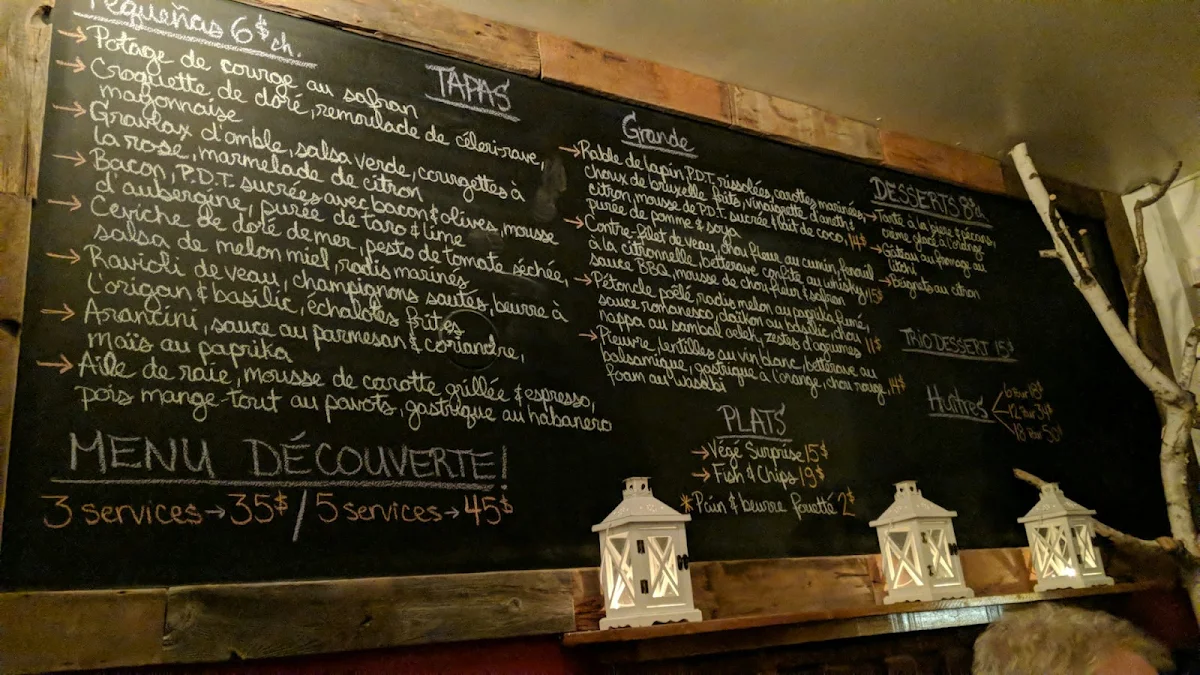 Pequeñas 6$ ch.
TAPAS
→ Potage de courge au safran
→ Croquette de doré, remoulade de céleri-rave,
mayonnaise
→ Gravlax d'omble, salsa verde, courgettes à
la rose, marmelade de citron
→ Bacon, P.D.T. sucrées avec bacon & olives, mousse
d'aubergine, purée de taro & lime
→ Ceviche de doré de mer, pesto de tomate séchée,
salsa de melon miel, radis marinés
→ Ravioli de veau, champignons sautés, beurre à
l'origan & basilic, échalotes frites
→ Arancini, sauce au parmesan & coriandre,
maïs au paprika
→ Aile de raie, mousse de carotte grillée & espresso,
pois mange-tout au pavots, gastrique au habanero
MENU DÉCOUVERTE!
3 services → 35$ / 5 services → 45$
Grande
→ Rable de lapin, P.D.T. rissolées, carottes marinées,
choux de bruxelle frits, vinaigrette d'aneth &
citron, mousse de P.D.T. sucrée & lait de coco, 14$
purée de pomme & soya
→ Contre-filet de veau, chou fleur au cumin, fenouil
à la citronnelle, betterave confite au whisky, 15$
sauce BBQ, mousse de chou fleur & safran
→ Pétoncle poêlé, radis melon au paprika fumé,
sauce romanesco, daikon au basilic, chou
nappa au sambal oelek, zestes d'agrumes 11$
→ Pieuvre, lentilles au vin blanc, betterave au
balsamique, gastrique à l'orange, chou rouge, 14$
foam au wasabi
PLATS
→ Végé Surprise 15$
→ Fish & Chips 19$
* Pain & beurre fouetté 2$
DESSERTS 8$
→ Tarte à la poire & pécans,
crème glacé à l'orange
→ Gâteau au fromage au
litchi
→ Beignets au citron
TRIO DESSERT 15$
Huîtres
6 pour 18$
12 pour 34$
18 pour 50$